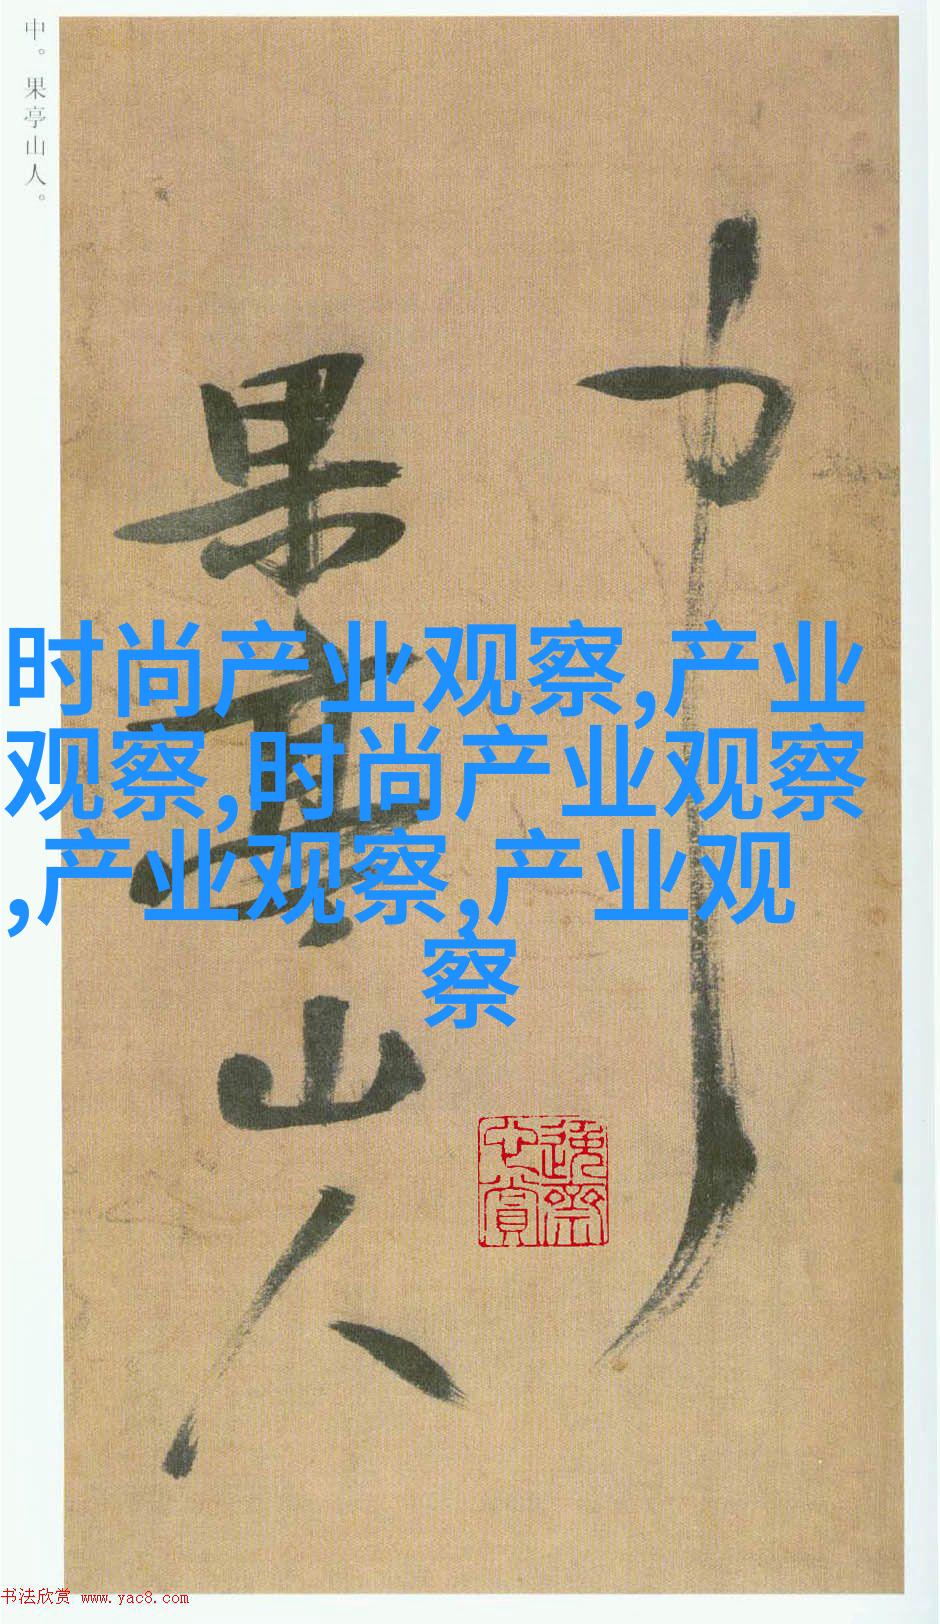 中。果亭山人。
中
果亭山人
时尚产业观察,产业
观察,时尚产业观察
,产业观察,产业观
察
逸斋
心赏
书法欣赏 www.yac8.com